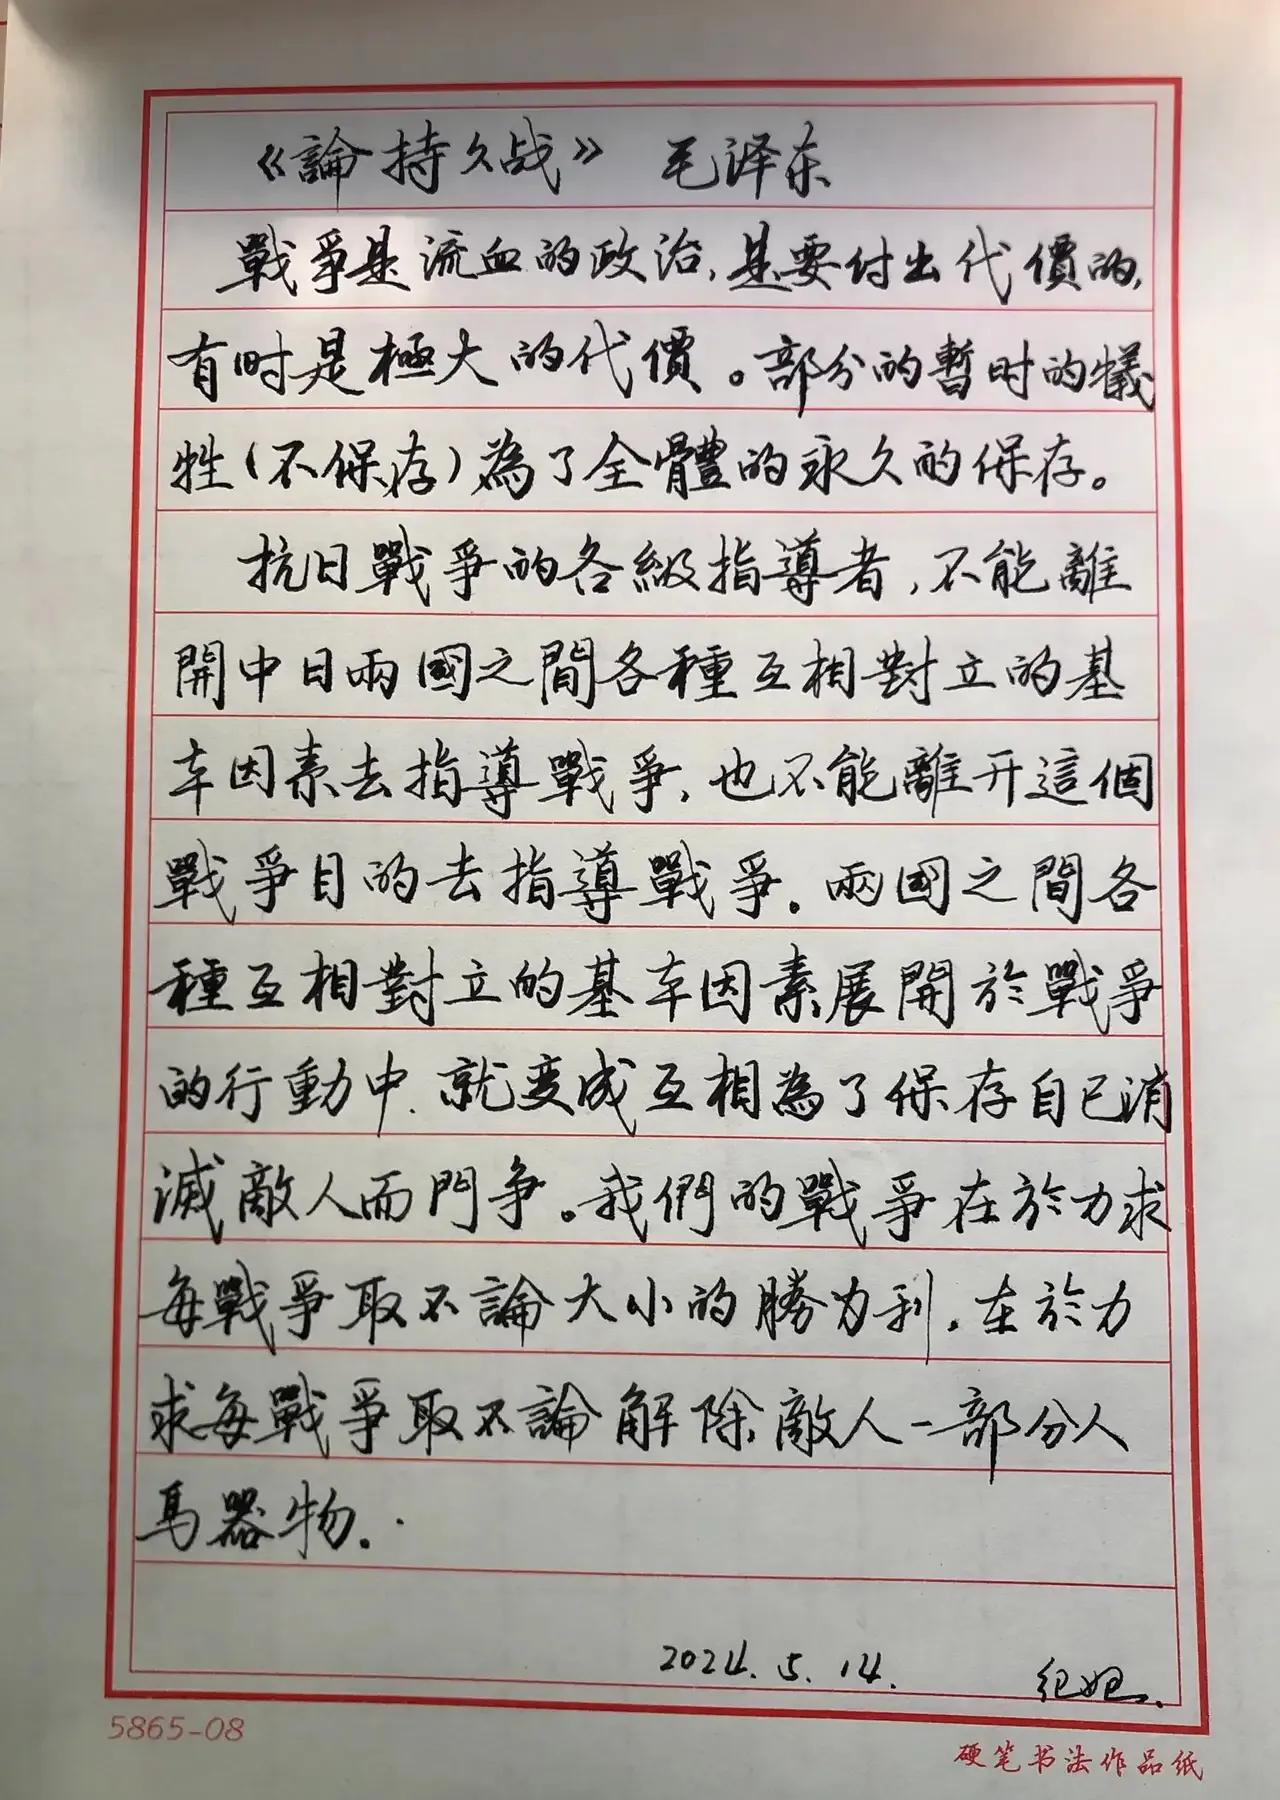 《論持久战》 毛泽东
戰爭是流血的政治,是要付出代價的,
有时是極大的代價。部分的暫时的犧
牲(不保存)為了全體的永久的保存。
抗日戰爭的各級指導者,不能離
開中日兩國之間各種互相對立的基
本因素去指導戰爭,也不能離开這個
戰爭目的去指導戰爭。兩國之間各
種互相對立的基本因素展開於戰爭
的行動中.就变成互相為了保存自己消
滅敵人而鬥争。我們的戰爭在於力求
每戰爭取不論大小的勝为利.在於力
求每戰爭取不論解除敵人一部分人
馬器物..
2024.5.14.
5865-08
硬笔书法作品纸